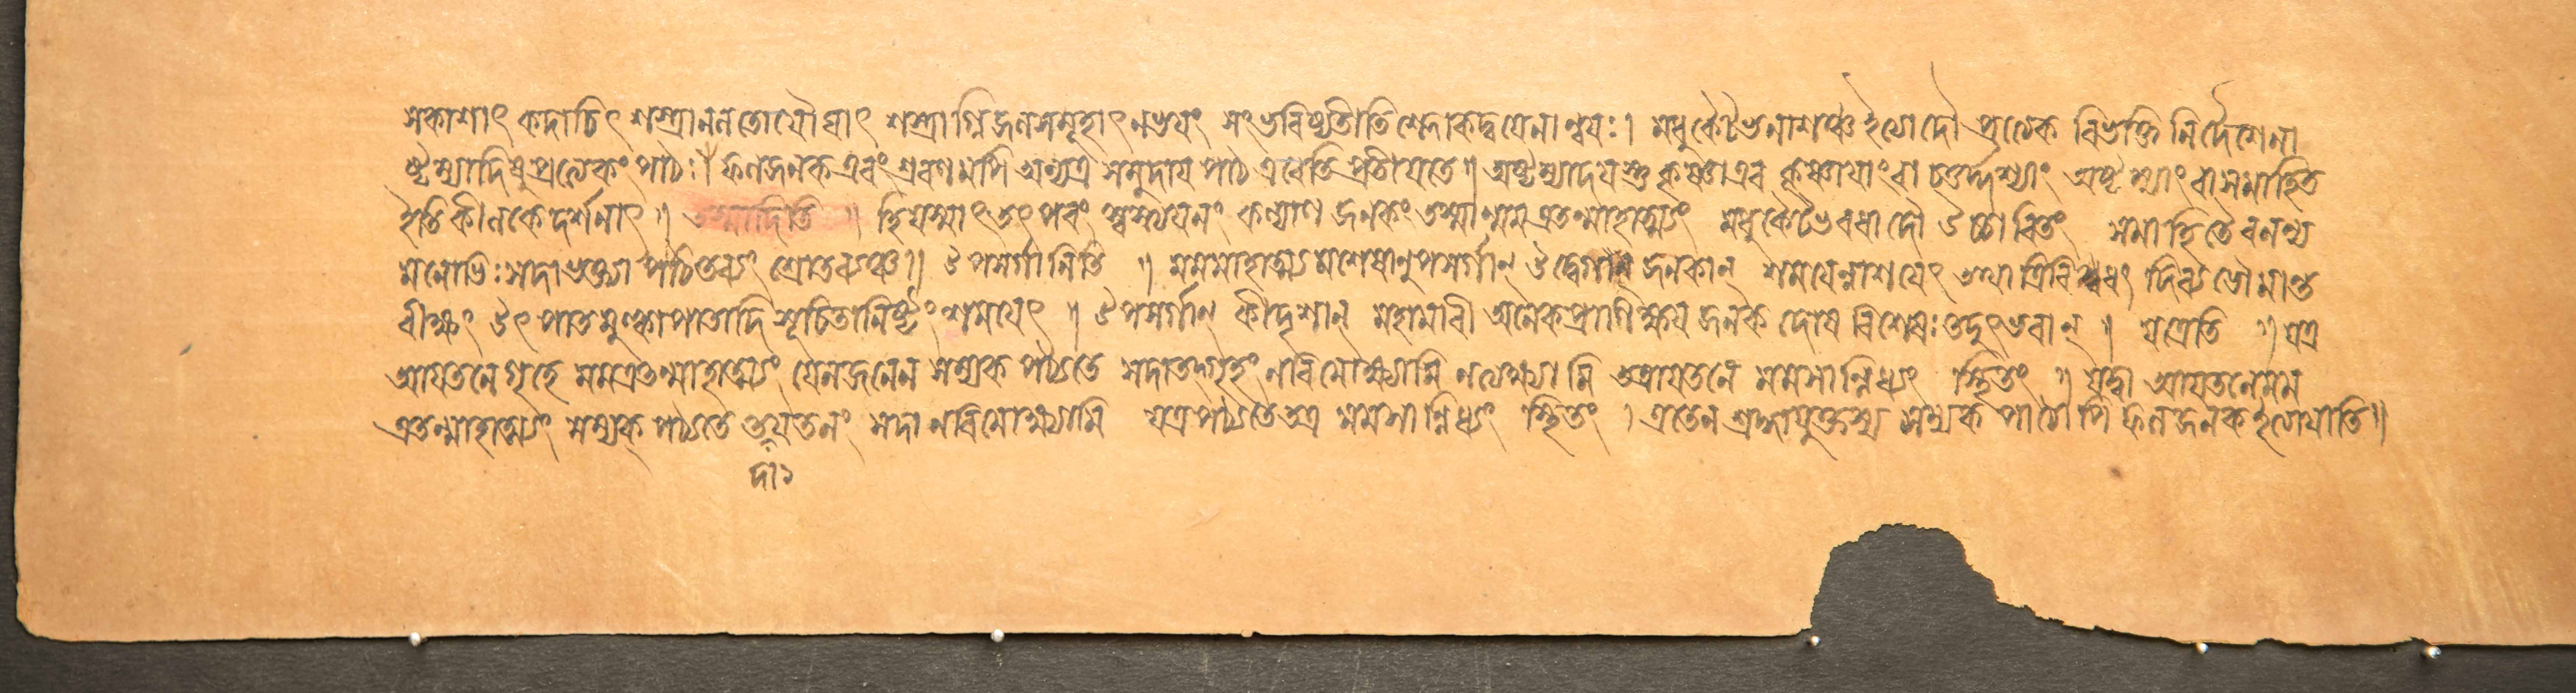 সকাশাৎ কদাচিৎ শস্ত্রানলতোযৌঘাৎ শস্ত্রাগ্নিজলসমূহাৎ নভয়ং সংভবিষ্যতীতি শ্লোকদ্বয়েনান্বয়ঃ। মধুকৈটভনাশঞ্চ ইত্যাদৌ প্রত্যেক বিভক্তি নির্দেশেনা
ষ্টম্যাদিষু প্রত্যেকং পাঠঃ। ফলজনক এবং শ্রবণমপি অন্যত্র সমুদায় পাঠ এবেতি প্রতীয়তে॥ অষ্টম্যাদয়স্তু কৃষ্ণা এব কৃষ্ণায়াং বা চতুর্দ্দশ্যাং অষ্টম্যাং বা সমাহিত
ইতি কীলকে দর্শনাৎ॥ তস্মাদিতি॥ হি যস্মাৎ তৎ পরং স্বস্ত্যয়নং কল্যাণ জনকং তস্মান্মম এতন্মাহাত্ম্যং মধুকৈটভবধাদৌ উঠাবিতং সমাহিতৈরনন্য
মনোভিঃ সদা ভক্ত্যা পঠিতব্যং শ্রোতব্যঞ্চ॥ উপসর্গানিতি॥ মম মাহাত্ম্যমশেষানুপসর্গান্ উদ্বেগান্ জনকান্ শময়েন্নাশয়েৎ তথা ত্রিবিধং দিব্য ভৌমান্ত
রীক্ষং উৎপাতমুল্কাপাতাদি সূচিতানিষ্টং শময়েৎ॥ উপসর্গান্ কীদৃশান্ মহামারী অনেকপ্রাণিক্ষয় জনক দোষ বিশেষঃ তদুৎভবান্॥ যত্রেতি॥ যত্র
আয়তনে গৃহে মম এতন্মাহাত্ম্যং যেন জনেন সম্যক পঠ্যতে সদা তদ্গৃহং ন বিমোক্ষ্যামি নত্যক্ষ্যামি তত্রায়তনে মম সান্নিধ্যং স্থিতং॥ যদ্বা আয়তনে মম
এতন্মাহাত্ম্যং সম্যক্ পঠ্যতে তয়তনং সদা ন বিমোক্ষ্যামি যত্র পঠ্যতে তত্র মম সান্নিধ্যং স্থিতং। এতেন শ্রদ্ধাযুক্তস্য সম্যক পাঠোপি ফলজনক ইত্যায়াতি॥
দা১